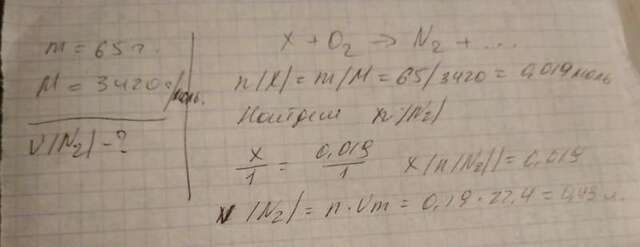 m = 65 г.
M = 3420 г/моль.
V(N₂) - ?
X + O₂ → N₂ + ...
n(X) = m/M = 65/3420 = 0,019 моль
Найдем n(N₂)
x/1 = 0,019/1 x(n(N₂)) = 0,019
V(N₂) = n · Vm = 0,19 · 22,4 = 0,43 л.